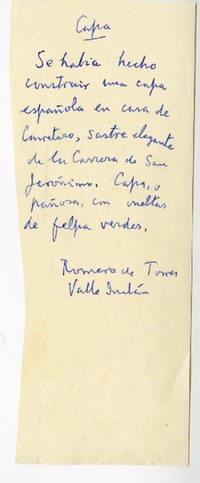 Capa
Se había hecho
construir una capa
española en casa de
Carretero, sastre elegante
de la Carrera de San
Jerónimo. Capa, o
pañosa, con vueltas
de felpa verdes.
Romero de Torres
Valle Inclán